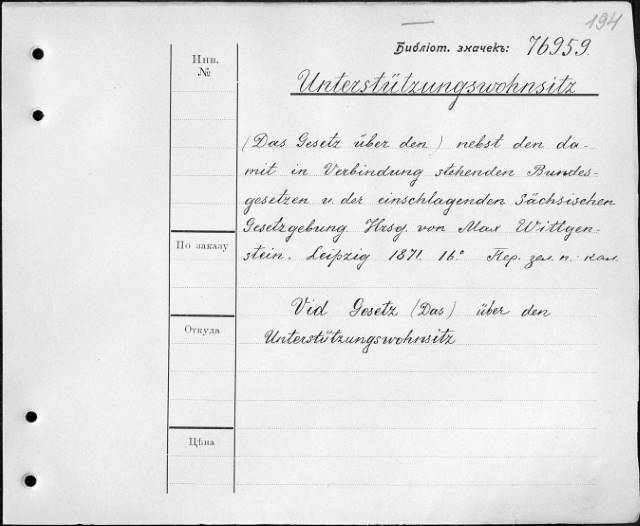 194
Библіот. значекъ: 76959.
Инв.
№
Unterstützungswohnsitz
(Das Gesetz über den) nebst den da-
mit in Verbindung stehenden Bundes-
gesetzen u. der einschlagenden Sächsischen
Gesetzgebung Hrsg. von Max Wittgen-
stein. Leipzig 1871. 16° Пер. зел. п. кал.
По заказу
Vid Gesetz (Das) über den
Unterstützungswohnsitz
Откуда
Цѣна